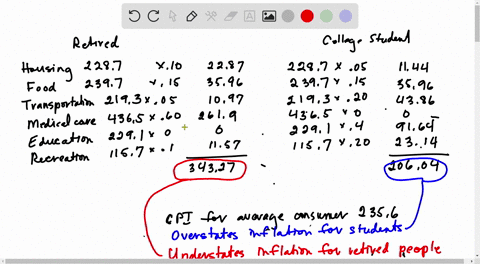 Retired
College Student
Housing 228.7 x.10 22.87 228.7 x .05 11.44
Food 239.7 x.15 35.96 239.7 x .15 35.96
Transportation 219.3 x .05 10.97 219.3 x .20 43.86
Medical care 436.5 x .60 261.9 436.5 x 0 0
Education 229.1 x 0 0 229.1 x .4 91.64
Recreation 115.7 x .1 11.57 115.7 x .20 23.14
343.27 206.04
CPI for average consumer 235.6
Overstates inflation for students
Understates inflation for retired people